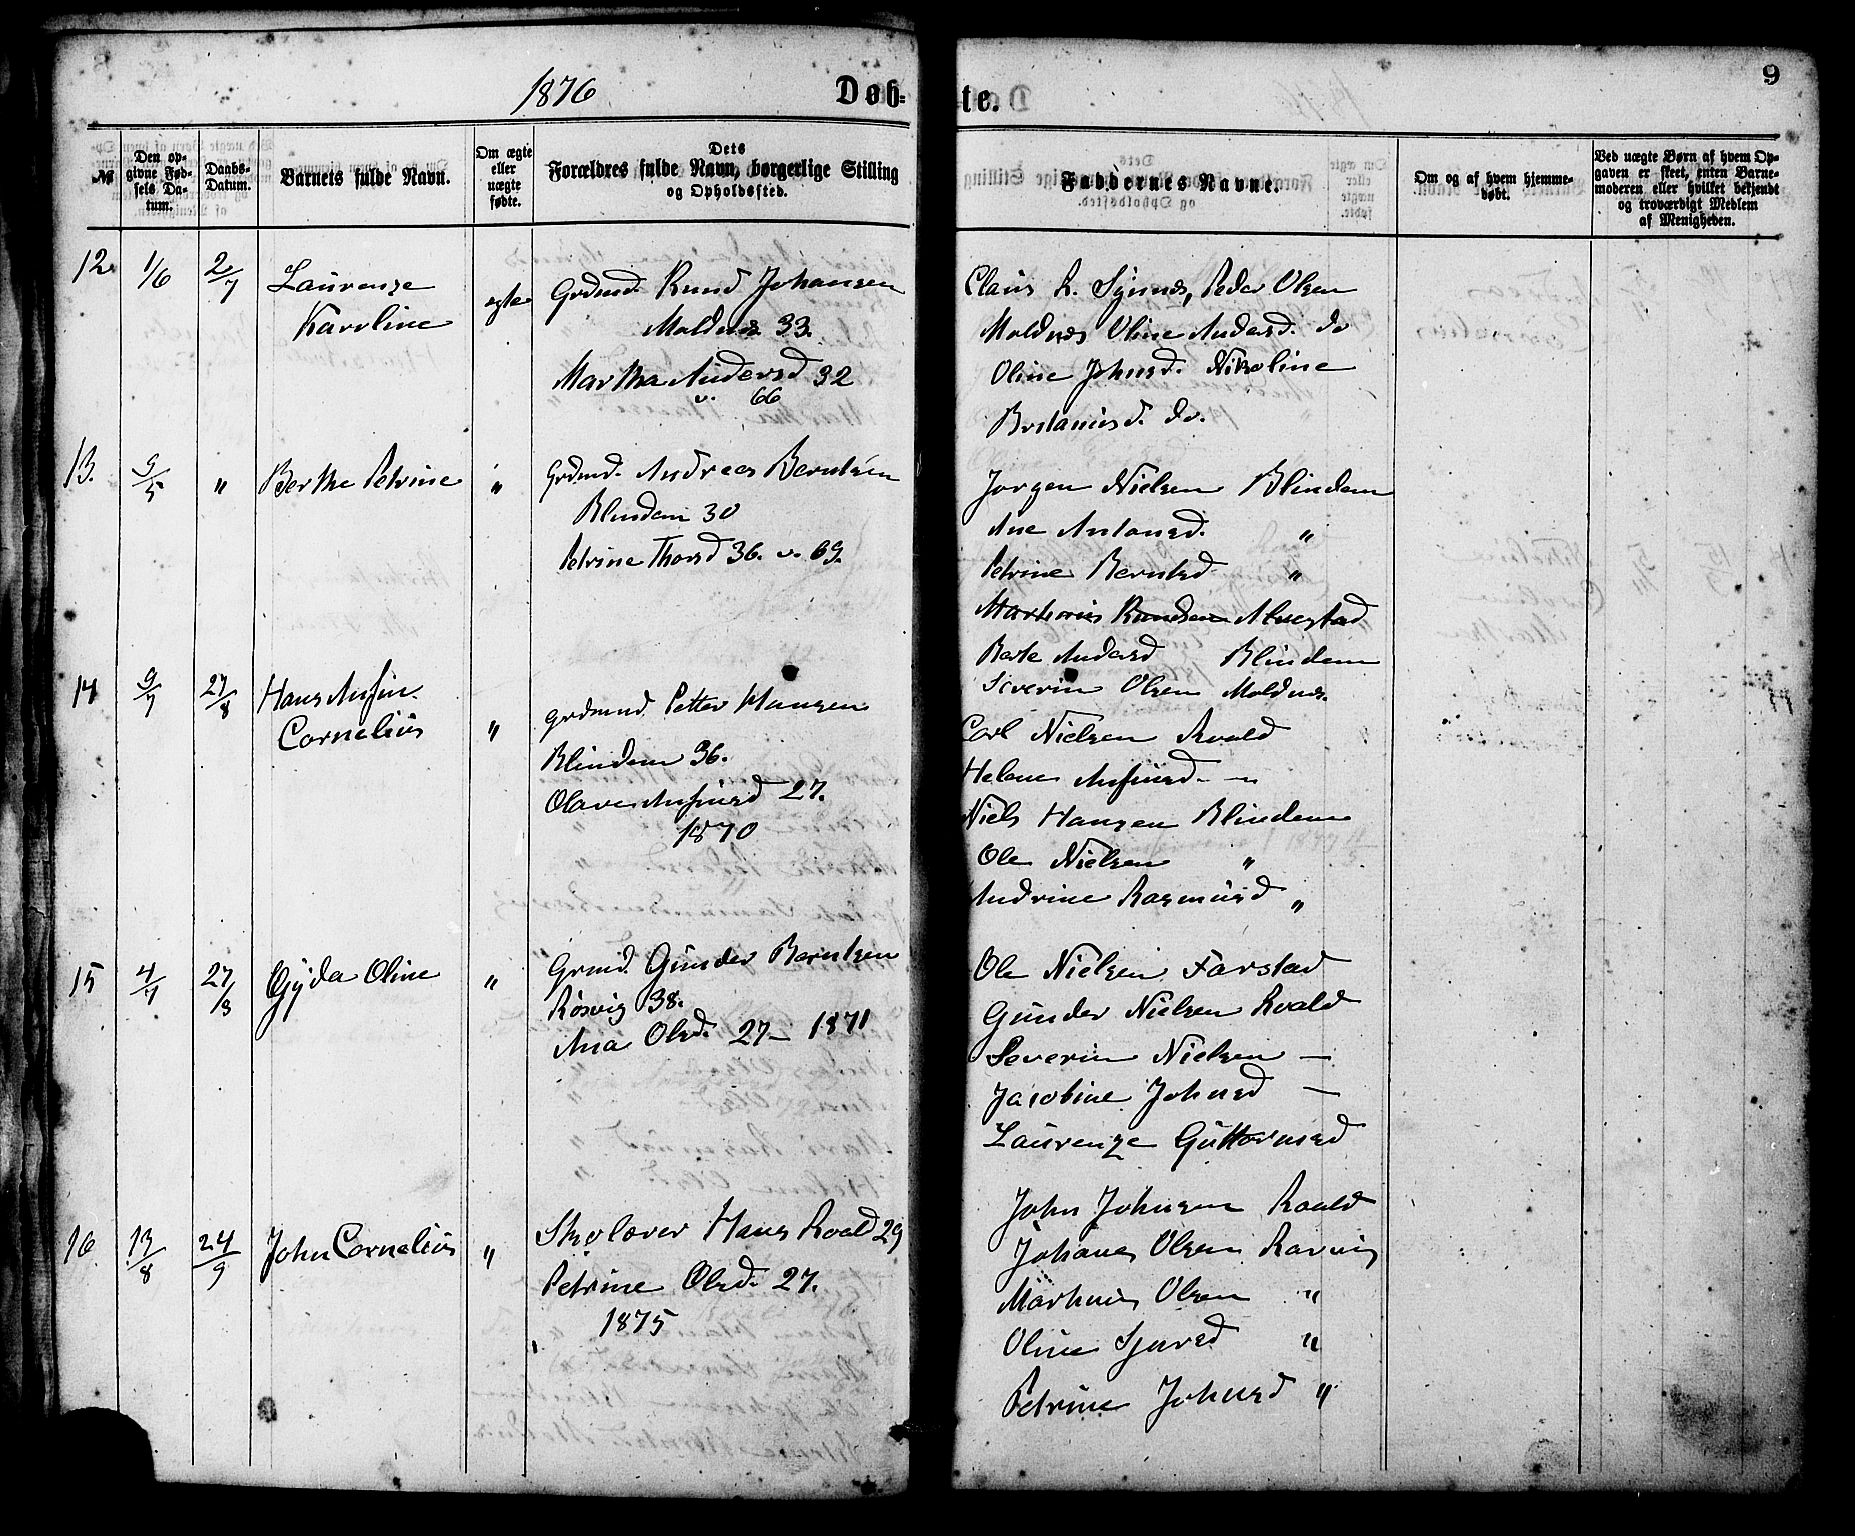 1876
Døb-
te.
9
№
Den op-
givne Fød-
sels Da-
tum.
Daabs-
Datum.
Barnets fulde Navn.
Om ægte
eller
uægte
fødte.
Dets
Forældres fulde Navn, borgerlige Stilling
og Opholdssted.
Faddernes Navne.
Om og af hvem hjemme-
døbt.
Ved uægte Børn af hvem Op-
gaven er skeet, enten Barne-
moderen eller hvilket bekjendt
og troværdigt Medlem
af Menigheden.
12
1/6
2/7
Laurenze
Karoline
egte
Grdmd. Knud Johansen
Moldnes 33.
Martha Andersd 32
v. 66
Claus L. Synnes, Peder Olsen
Moldnes Oline Andersd. do
Oline Johnsd. Nikoline
do.
13.
9/5
"
Berthe Petrine
"
Grdmd. Andreas Berntsen
Blindem 30
Petrine Thorsd 36. v. 69.
Jørgen Nielsen Blindem
Ane Antonsd. "
Petrine Berntsd "
Marthinus Knudsen Alnestad
Berte Andersd Blindem
Severin Olsen Moldnes.
14
9/7
27/8
Hans Anfin
Cornelius
"
grdmd. Petter Hansen
Blindem 36.
Olave Anfinsd 27.
1870
Carl Nielsen Roald
Helene Anfinsd. —
Niels Hansen Blindem
Ole Nielsen "
Andrine Rasmusd "
15
4/7
27/8
Gyda Oline
"
Grmd. Gunder Berntsen
Røsvig 38.
Ana Olsd. 27 — 1871
Ole Nielsen Farstad
Gunder Nielsen Roald
Severin Nielsen —
Jacobine Johnsd —
Laurenze Guttormsd
16
13/8
24/9
John Cornelius
"
Skolærer Hans Roald 29
Petrine Olsd. 27.
1875
John Johnsen Roald
Johanes Olsen
Marthinus Olsen "
Oline Sjursd "
Petrine Johnsd "